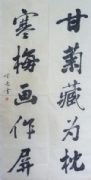 甘菊藏为枕
寒梅画作屏